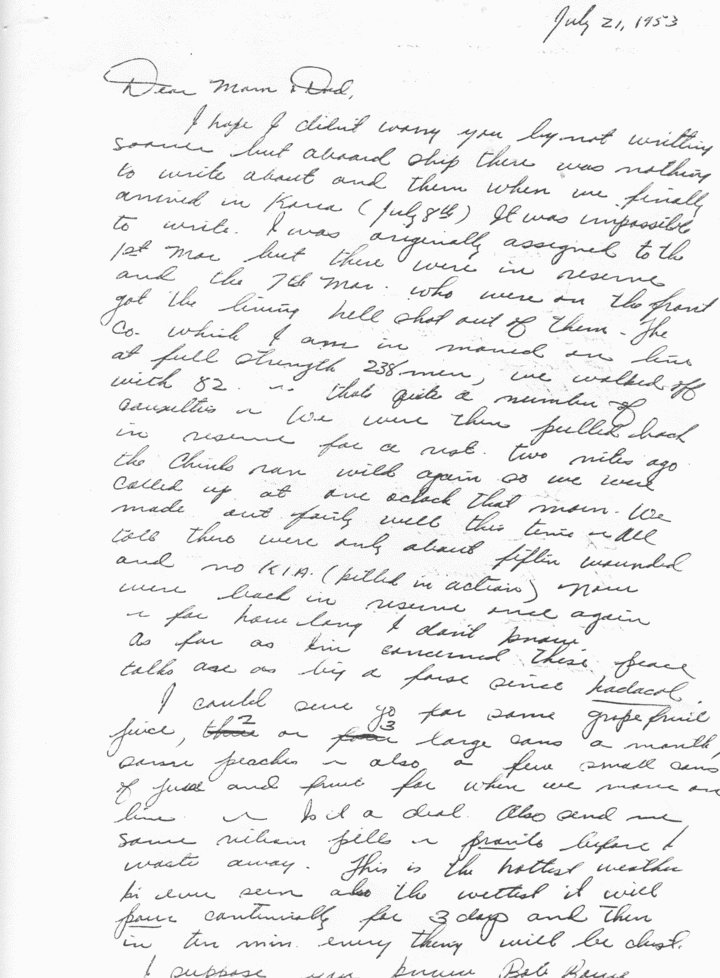 July 21, 1953
Dear Mom & Dad,
I hope I didn't worry you by not writting
sooner but aboard ship there was nothing
to write about and them when we finally
arrived in Korea (July 8th) It was impossible
to write. I was originally assigned to the
1st Mar but there were in reserve
and the 7th Mar. who were on the front
got the living hell shot out of them - The
Co. which I am in moved on line
at full strength 238 men, we walked off
with 82. ~ thats quite a number of
causelties ~ We were then pulled back
in reserve for a rest. two nites ago
the Chinks ran wild again so we were
called up at one oclock that morn. We
made out fairly well this time ~ All
told there were only about fiftin wounded
and no K.I.A. (killed in action) now
were back in reserve once again
~ for how long I don't know
As far as Im concerned these peace
talks are as big a farse since hadacol.
I could sure go for some grapefruit
juice, three 2 or four 3 large cans a month,
some peaches ~ also a few small cans
of juice and fruit for when we move on
line ~ Is it a deal. Also send me
some vitiam pills ~ pronto before I
waste away. This is the hottest weather
Iv ever seen also the wettest it will
pour continually for 3 days and then
in ten min. every thing will be dust.
I suppose you know Bob